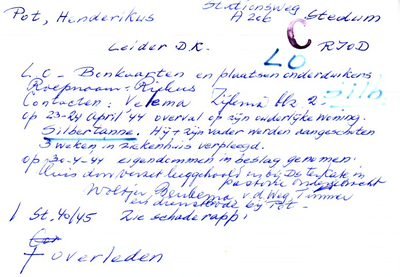 Pot, Henderikus Stationsweg
A 206 Stedum
C
Leider D.K. RJOD
LO
L.O - Bonkaarten en plaatsen onderduikers
Roepnaam: Rijkus
Contacten: Velema blz 2
op 23-24 april '44 overval op zijn ouderlijke woning.
Silbertanne. Hij + zijn vader werden aangeschoten
3 weken in ziekenhuis verpleegd.
op 30-4-44 eigendommen in beslag genomen.
Huis door verzet leeggehaald en bij De
pastorie ondergebracht
Woltjer, Beukema v.d. Weg, Timmer
en dienstbode bij Pot -
St. 40/45 Zie schaderapp!
† overleden